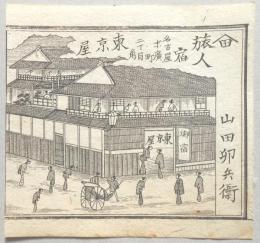 旅人
宿
名古屋
十廣町
二丁目角
東京屋
山田卯兵衛
東京屋
御宿